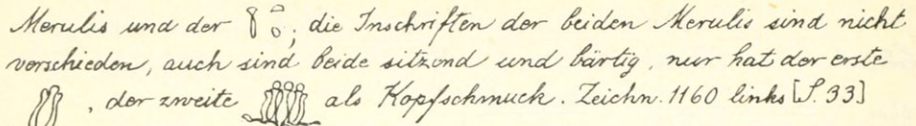 Merulis und der ; die Inschriften der beiden Merulis sind nicht
verschieden, auch sind beide sitzend und bärtig, nur hat der erste
, der zweite als Kopfschmuck. Zeichn. 1160 links [S. 33]